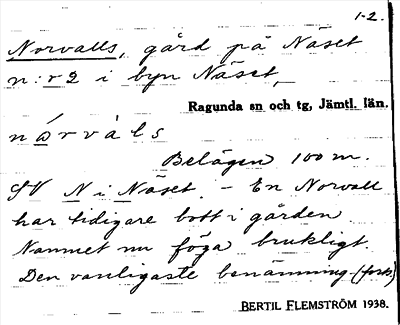 1-2.
Norvalls, gård på Näset
n:r 2 i byn Näset,
Ragunda sn och tg, Jämtl. län.
nårvàls
Belägen 100 m.
SV N i Näset. - En Norvall
har tidigare bott i gården
Namnet nu föga brukligt.
Den vanligaste benämning (forts)
BERTIL FLEMSTRÖM 1938.